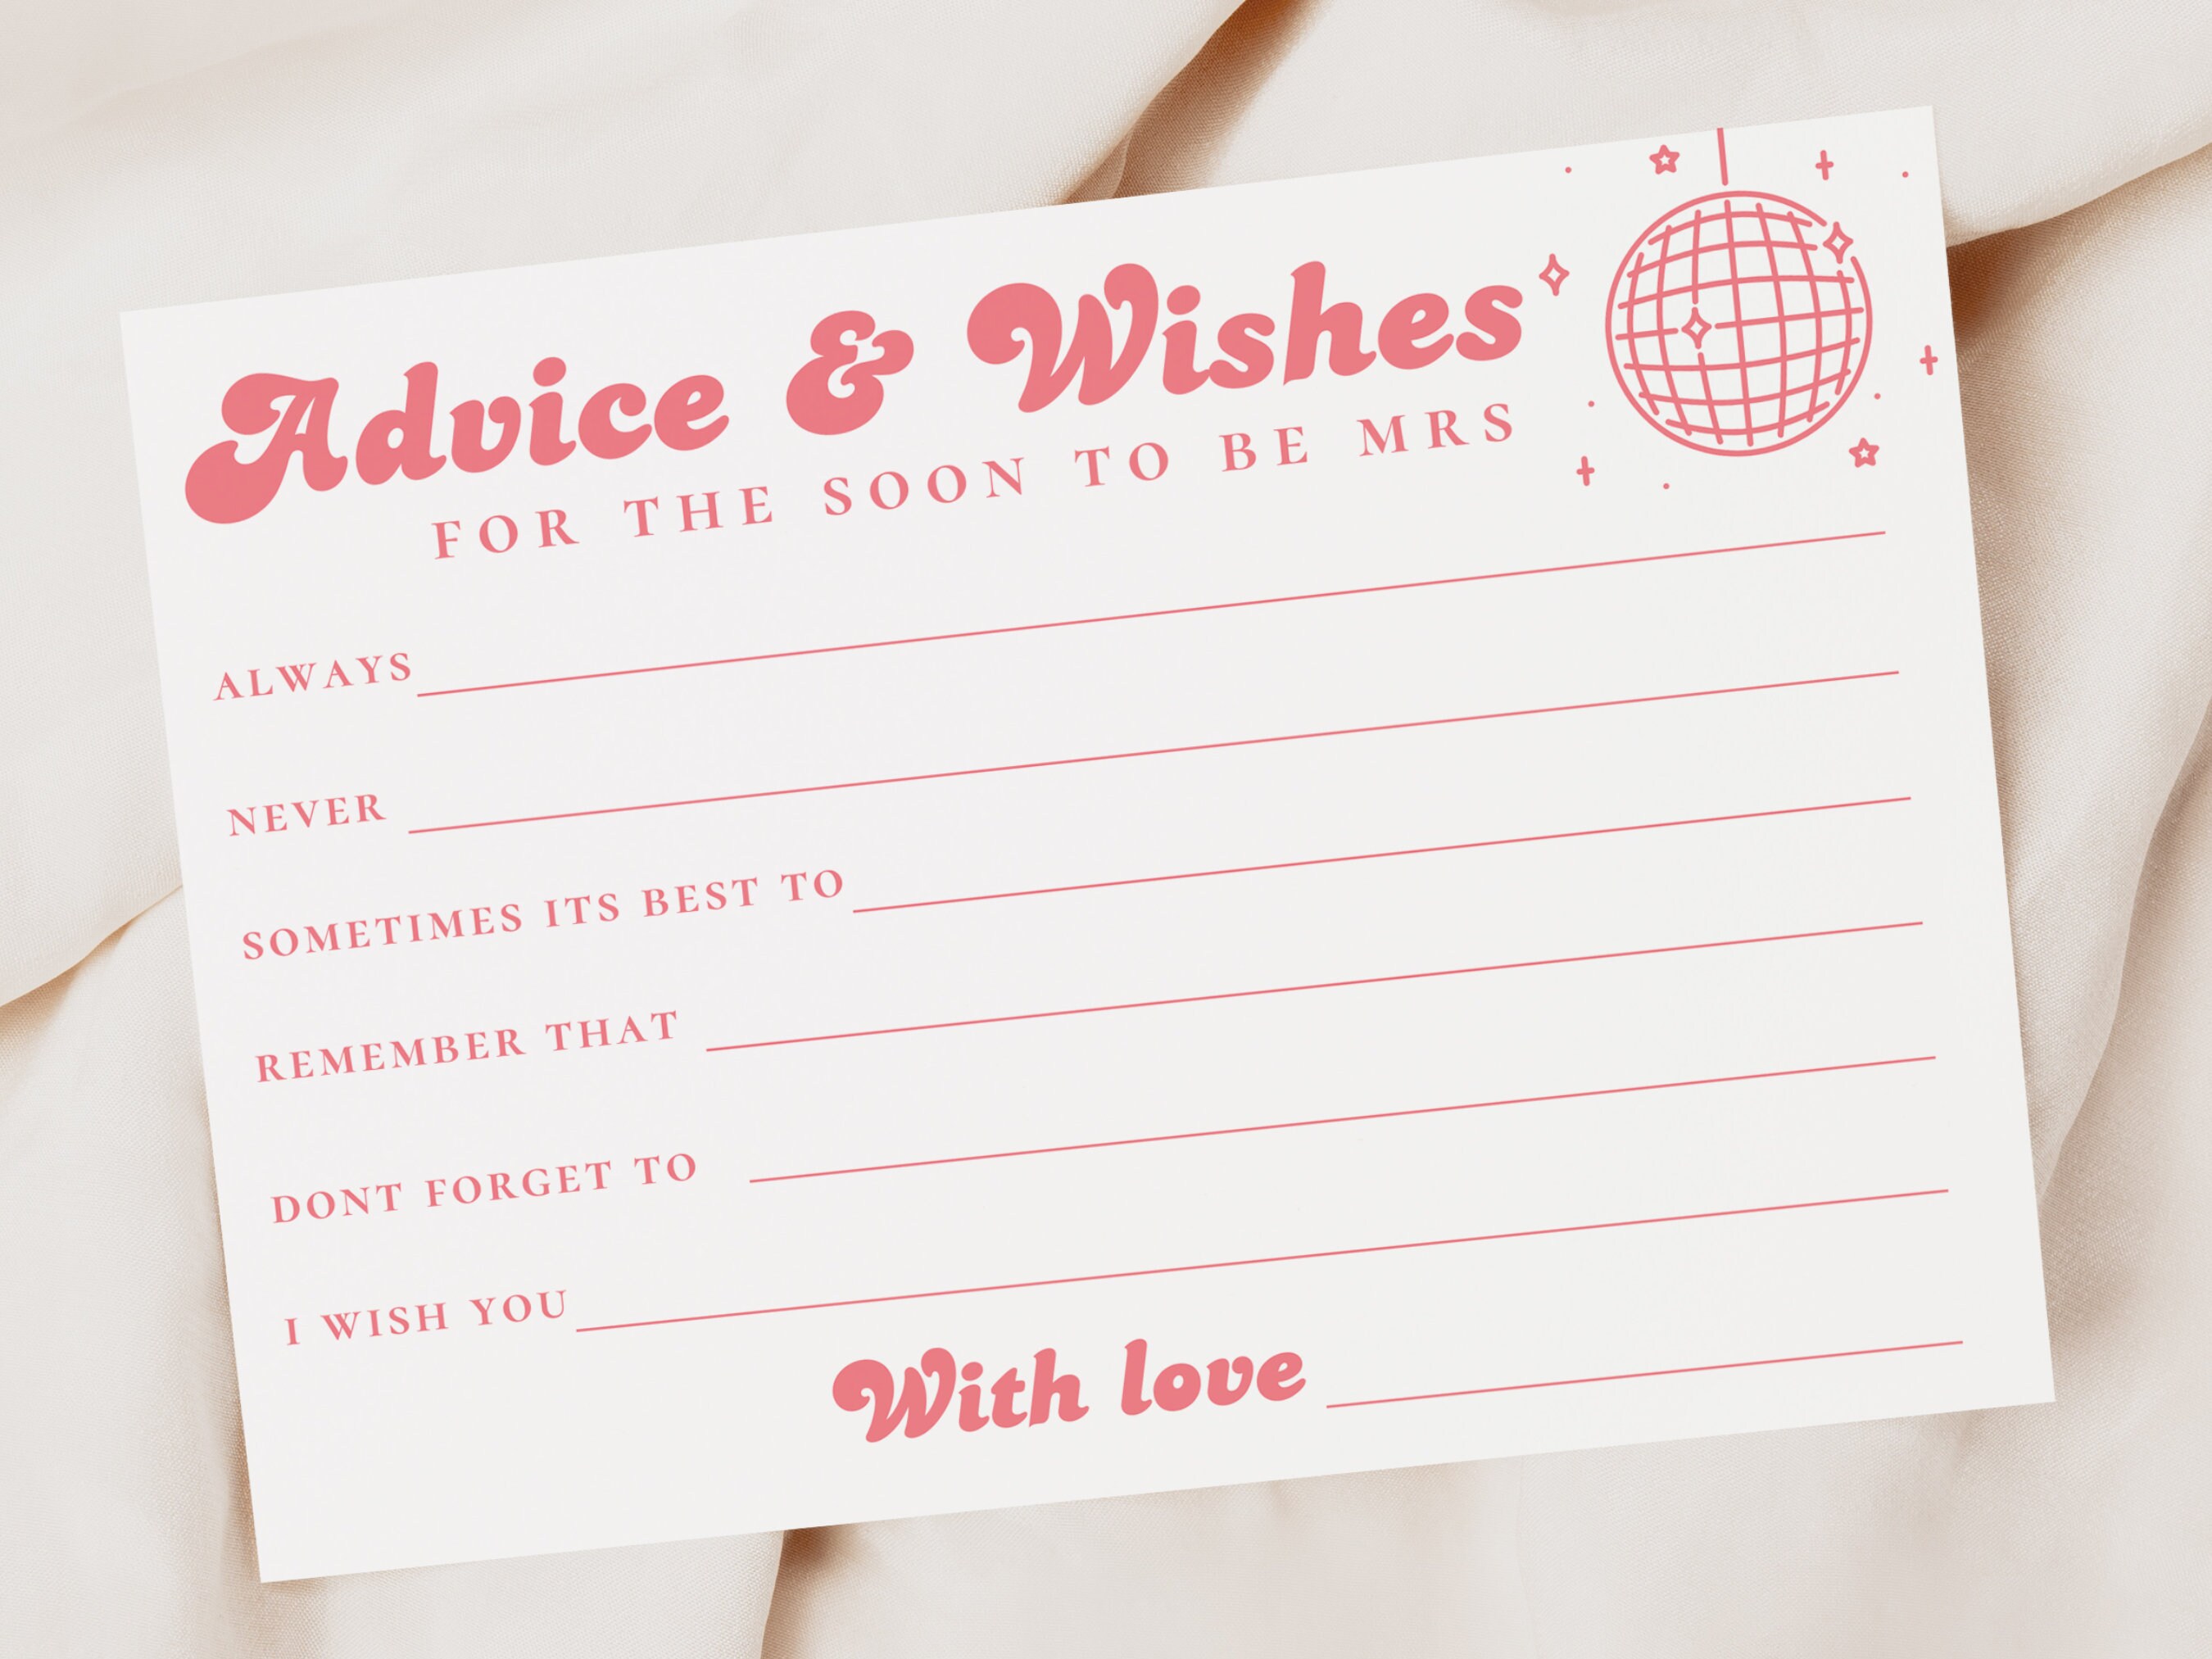 Advice & Wishes
FOR THE SOON TO BE MRS
ALWAYS
NEVER
SOMETIMES ITS BEST TO
REMEMBER THAT
DONT FORGET TO
I WISH YOU
With love